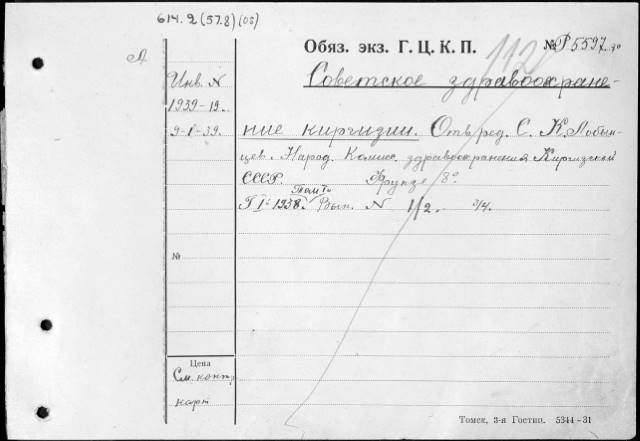 614.2(57.8)(05)
Обяз. экз. Г. Ц. К. П. 112 № Р5597
А
Инв. N
Советское здравоохране-
1939-19.
9-I-39.
ние киргизии. Отв. ред. С. К. Лобын-
цев. Народ. Комисс. здравоохранения Киргизской
СССР. Фрунзе 8°
Т I: 1938. Вып. N 1/2. 3/4.
№
Цена
См. конт.
карт
Томск, 3-я Гостип. 5344-31